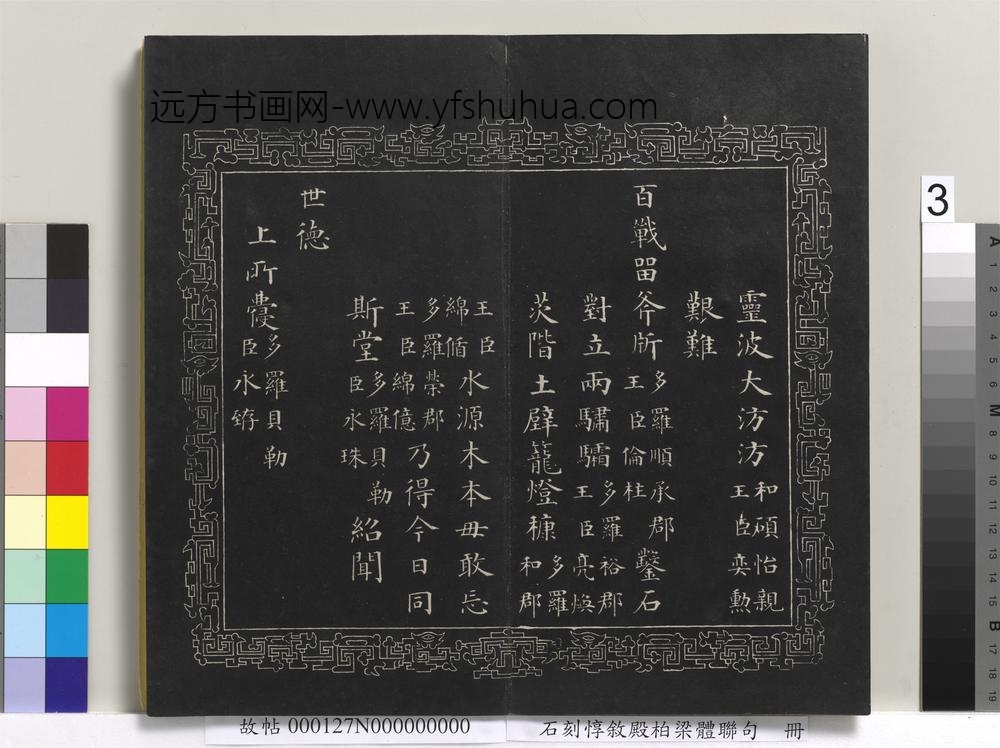 远方书画网-www.yfshuhua.com
3
靈波大汸汸和碩怡親
王臣奕勲
艱難
百戰留斧斨多羅順承郡
王臣倫柱鑿石
對立兩驌驦多羅裕郡
王臣亮煥
茨階土壁籠燈糠多羅
和郡
王臣
綿循水源木本毋敢忘
多羅榮郡
王臣綿億乃得今日同
斯堂多羅貝勒
臣永珠紹聞
世德
上所多羅貝勒
臣永
故帖 000127N000000000
石刻惇敘殿柏梁體聯句 冊